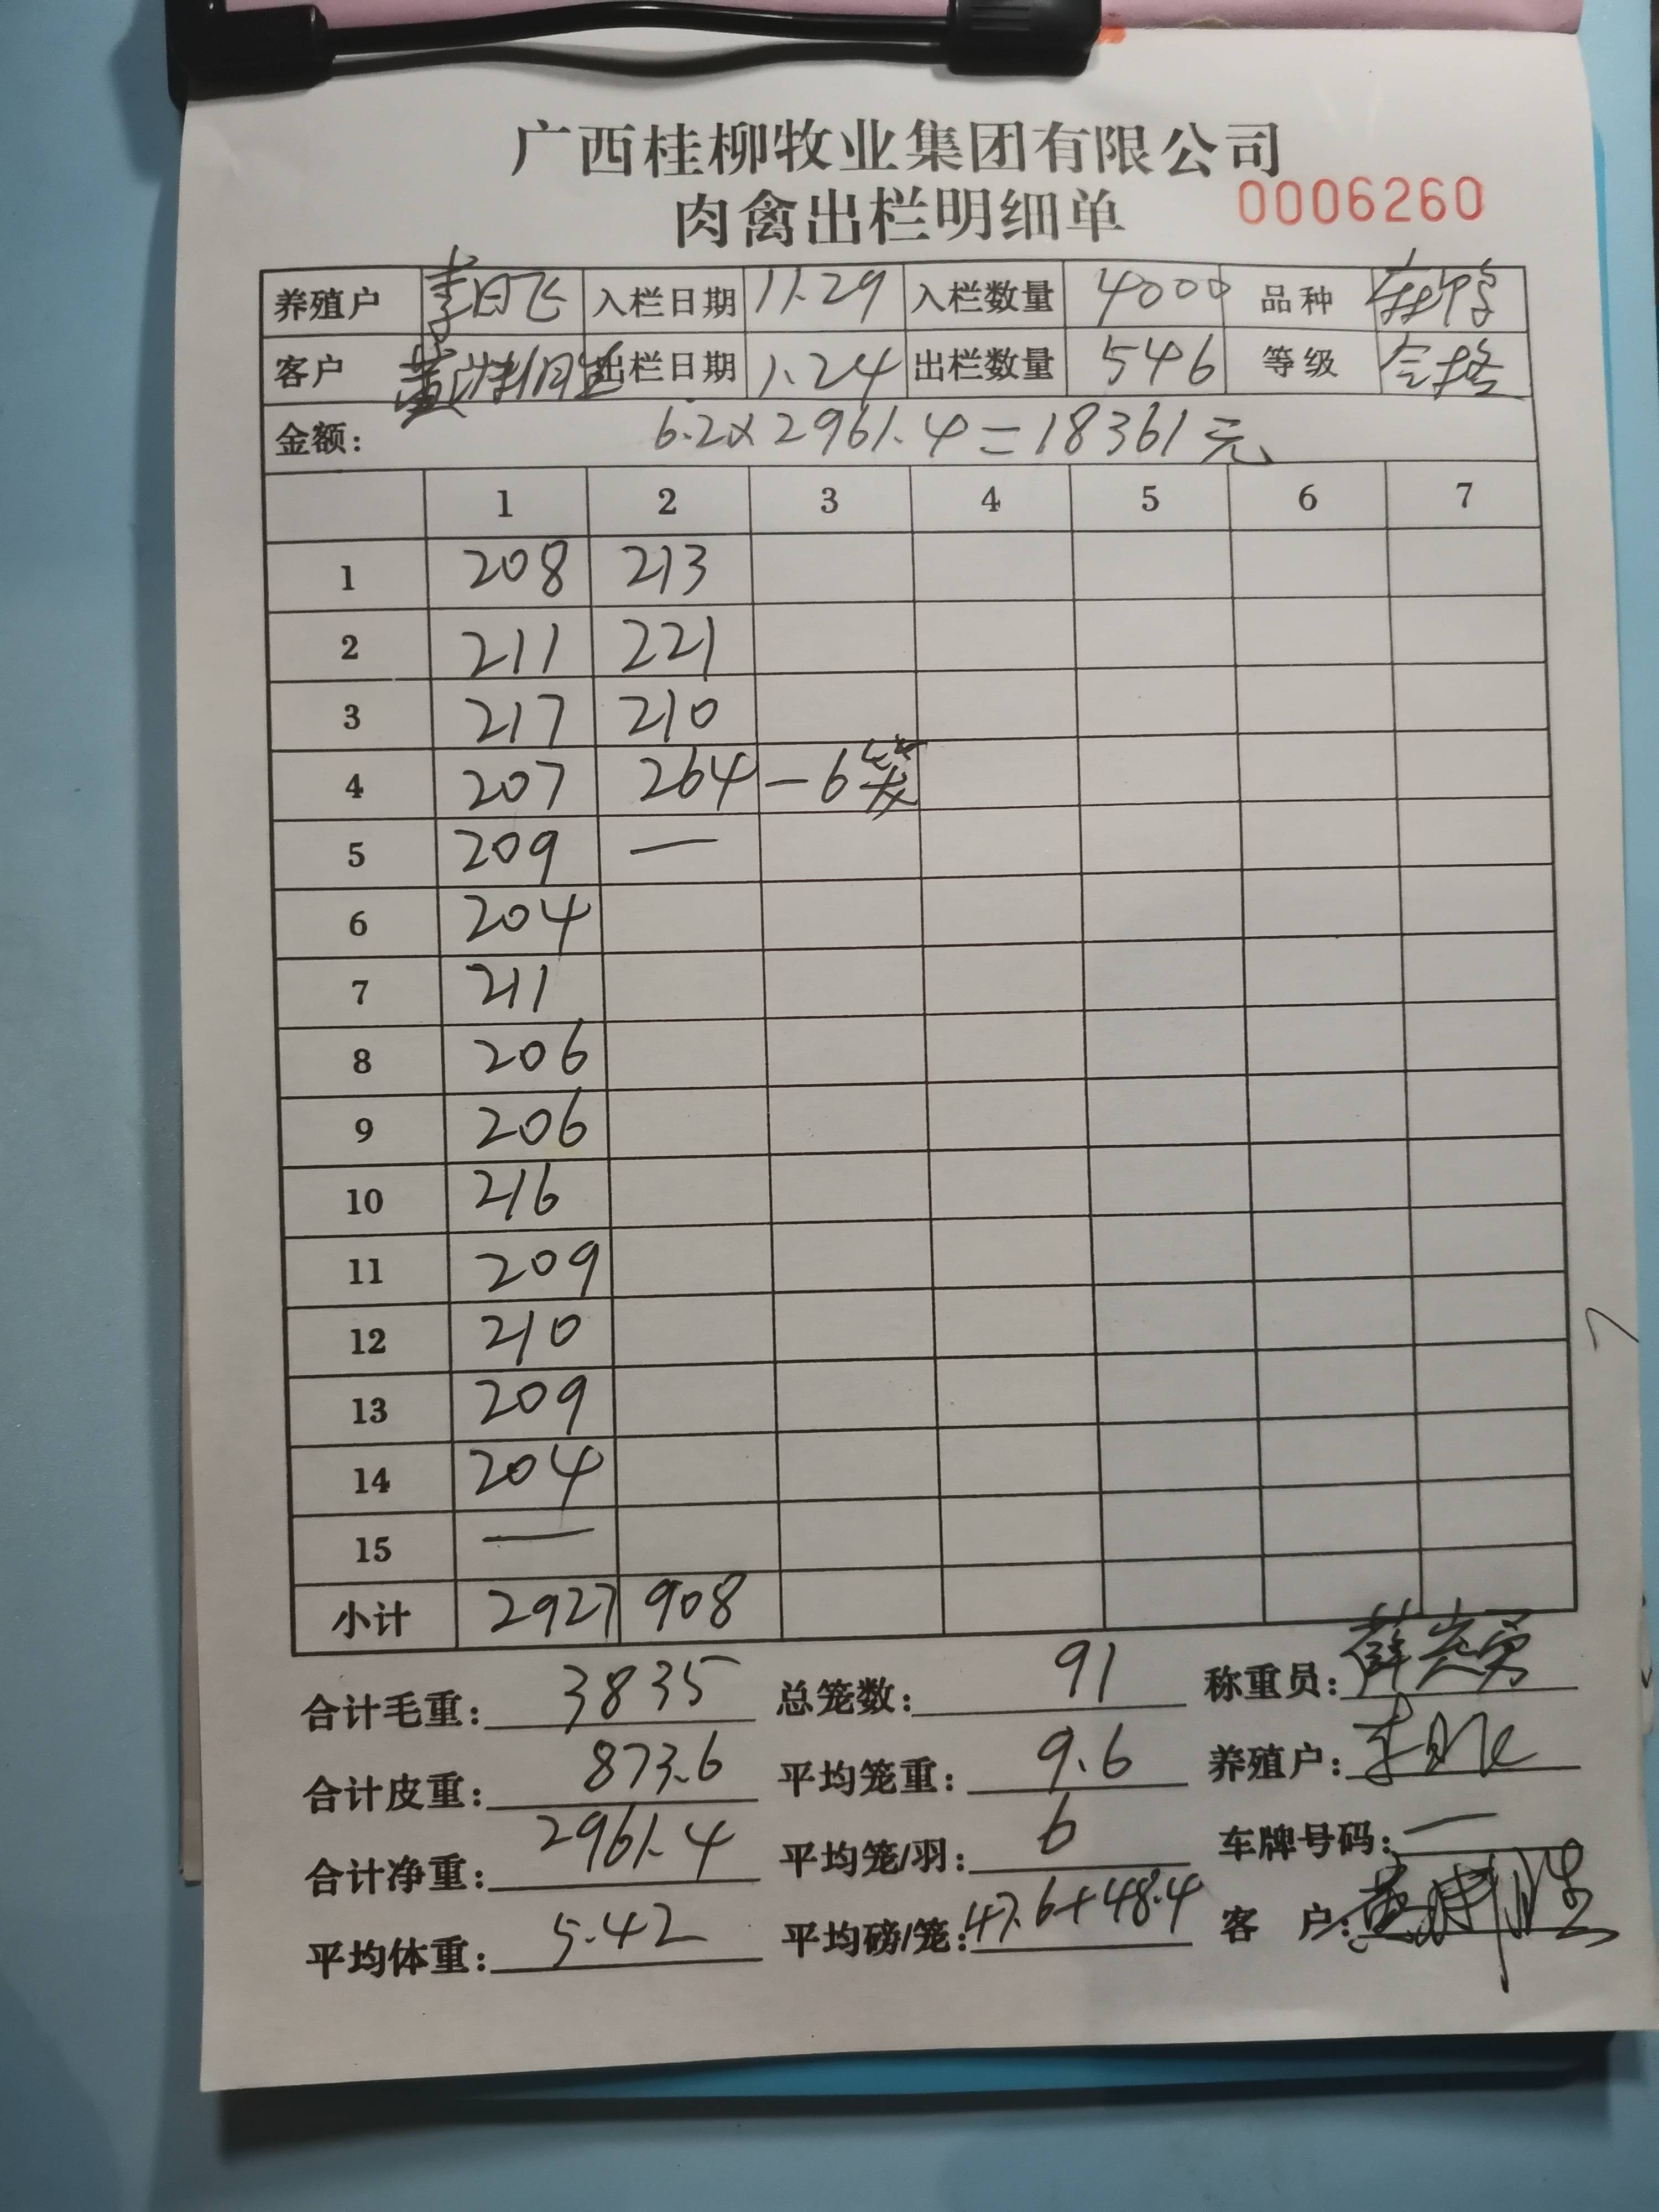 广西桂柳牧业集团有限公司
肉禽出栏明细单 0006260
养殖户 李日飞 入栏日期 11.29 入栏数量 4000 品种
客户 出栏日期 1.24 出栏数量 546 等级 合格
金额: 6.2×2961.4=18361元
1 2 3 4 5 6 7
1 208 213
2 211 221
3 217 210
4 207 264 —6笼
5 209 —
6 204
7 211
8 206
9 206
10 216
11 209
12 210
13 209
14 204
15 —
小计 2927 908
合计毛重: 3835 总笼数: 91 称重员:
合计皮重: 873.6 平均笼重: 9.6 养殖户: 李日飞
合计净重: 2961.4 平均笼/羽: 6 车牌号码: —
平均体重: 5.42 平均磅/笼: 47.6+48.4 客 户: